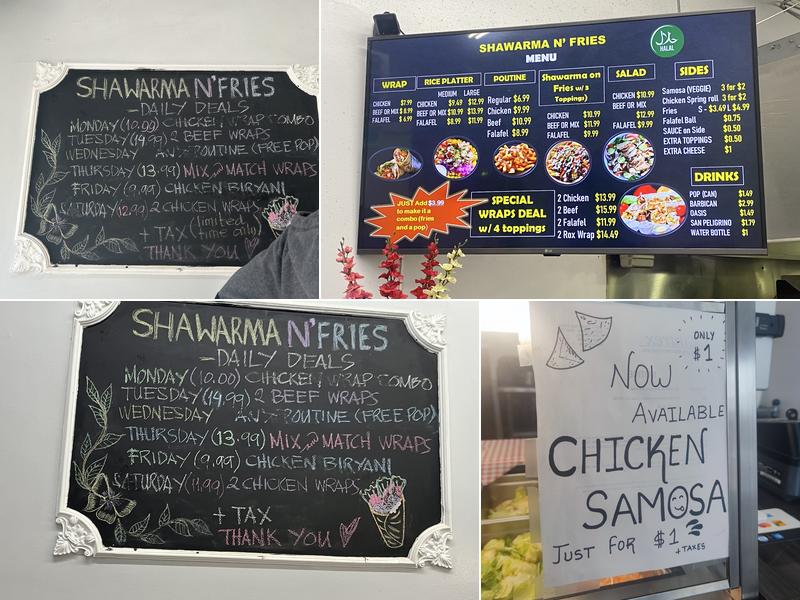 SHAWARMA N'FRIES
-DAILY DEALS
MONDAY (10.99) CHICKEN WRAP COMBO
TUESDAY (14.99) 2 BEEF WRAPS
WEDNESDAY ANY POUTINE (FREE POP)
THURSDAY (13.99) MIX & MATCH WRAPS
FRIDAY (9.99) CHICKEN BIRYANI
SATURDAY (12.99) 2 CHICKEN WRAPS
+ TAX (limited time only)
THANK YOU
SHAWARMA N' FRIES
MENU
حلال
HALAL
WRAP
CHICKEN $7.99
BEEF OR MIX $8.99
FALAFEL $6.99
RICE PLATTER
MEDIUM LARGE
CHICKEN $9.49 $12.99
BEEF OR MIX $10.99 $13.99
FALAFEL $8.99 $11.99
POUTINE
Regular $6.99
Chicken $9.99
Beef $10.99
Falafel $8.99
Shawarma on
Fries w/ 3
Toppings)
CHICKEN $10.99
BEEF OR MIX $11.99
FALAFEL $9.99
SALAD
CHICKEN $10.99
BEEF OR MIX
$12.99
FALAFEL $9.99
SIDES
Samosa (VEGGIE) 3 for $2
Chicken Spring roll 3 for $2
Fries S - $3.49 L $4.99
Falafel Ball $0.75
SAUCE on Side $0.50
EXTRA TOPPINGS $0.50
EXTRA CHEESE $1
JUST Add $3.99
to make it a
combo (fries
and a pop)
SPECIAL
WRAPS DEAL
w/ 4 toppings
2 Chicken $13.99
2 Beef $15.99
2 Falafel $11.99
2 Rox Wrap $14.49
DRINKS
POP (CAN) $1.49
BARBICAN $2.99
OASIS $1.49
SAN PELIGRINO $1.79
WATER BOTTLE $1
LG
SHAWARMA N'FRIES
-DAILY DEALS
MONDAY (10.00) CHICKEN WRAP COMBO
TUESDAY (14.99) 2 BEEF WRAPS
WEDNESDAY ANY POUTINE (FREE POP)
THURSDAY (13.99) MIX & MATCH WRAPS
FRIDAY (9.99) CHICKEN BIRYANI
SATURDAY (11.99) 2 CHICKEN WRAPS
+ TAX
THANK YOU
ONLY
$1
NOW
AVAILABLE
CHICKEN
SAMOSA
JUST FOR $1
+ TAXES